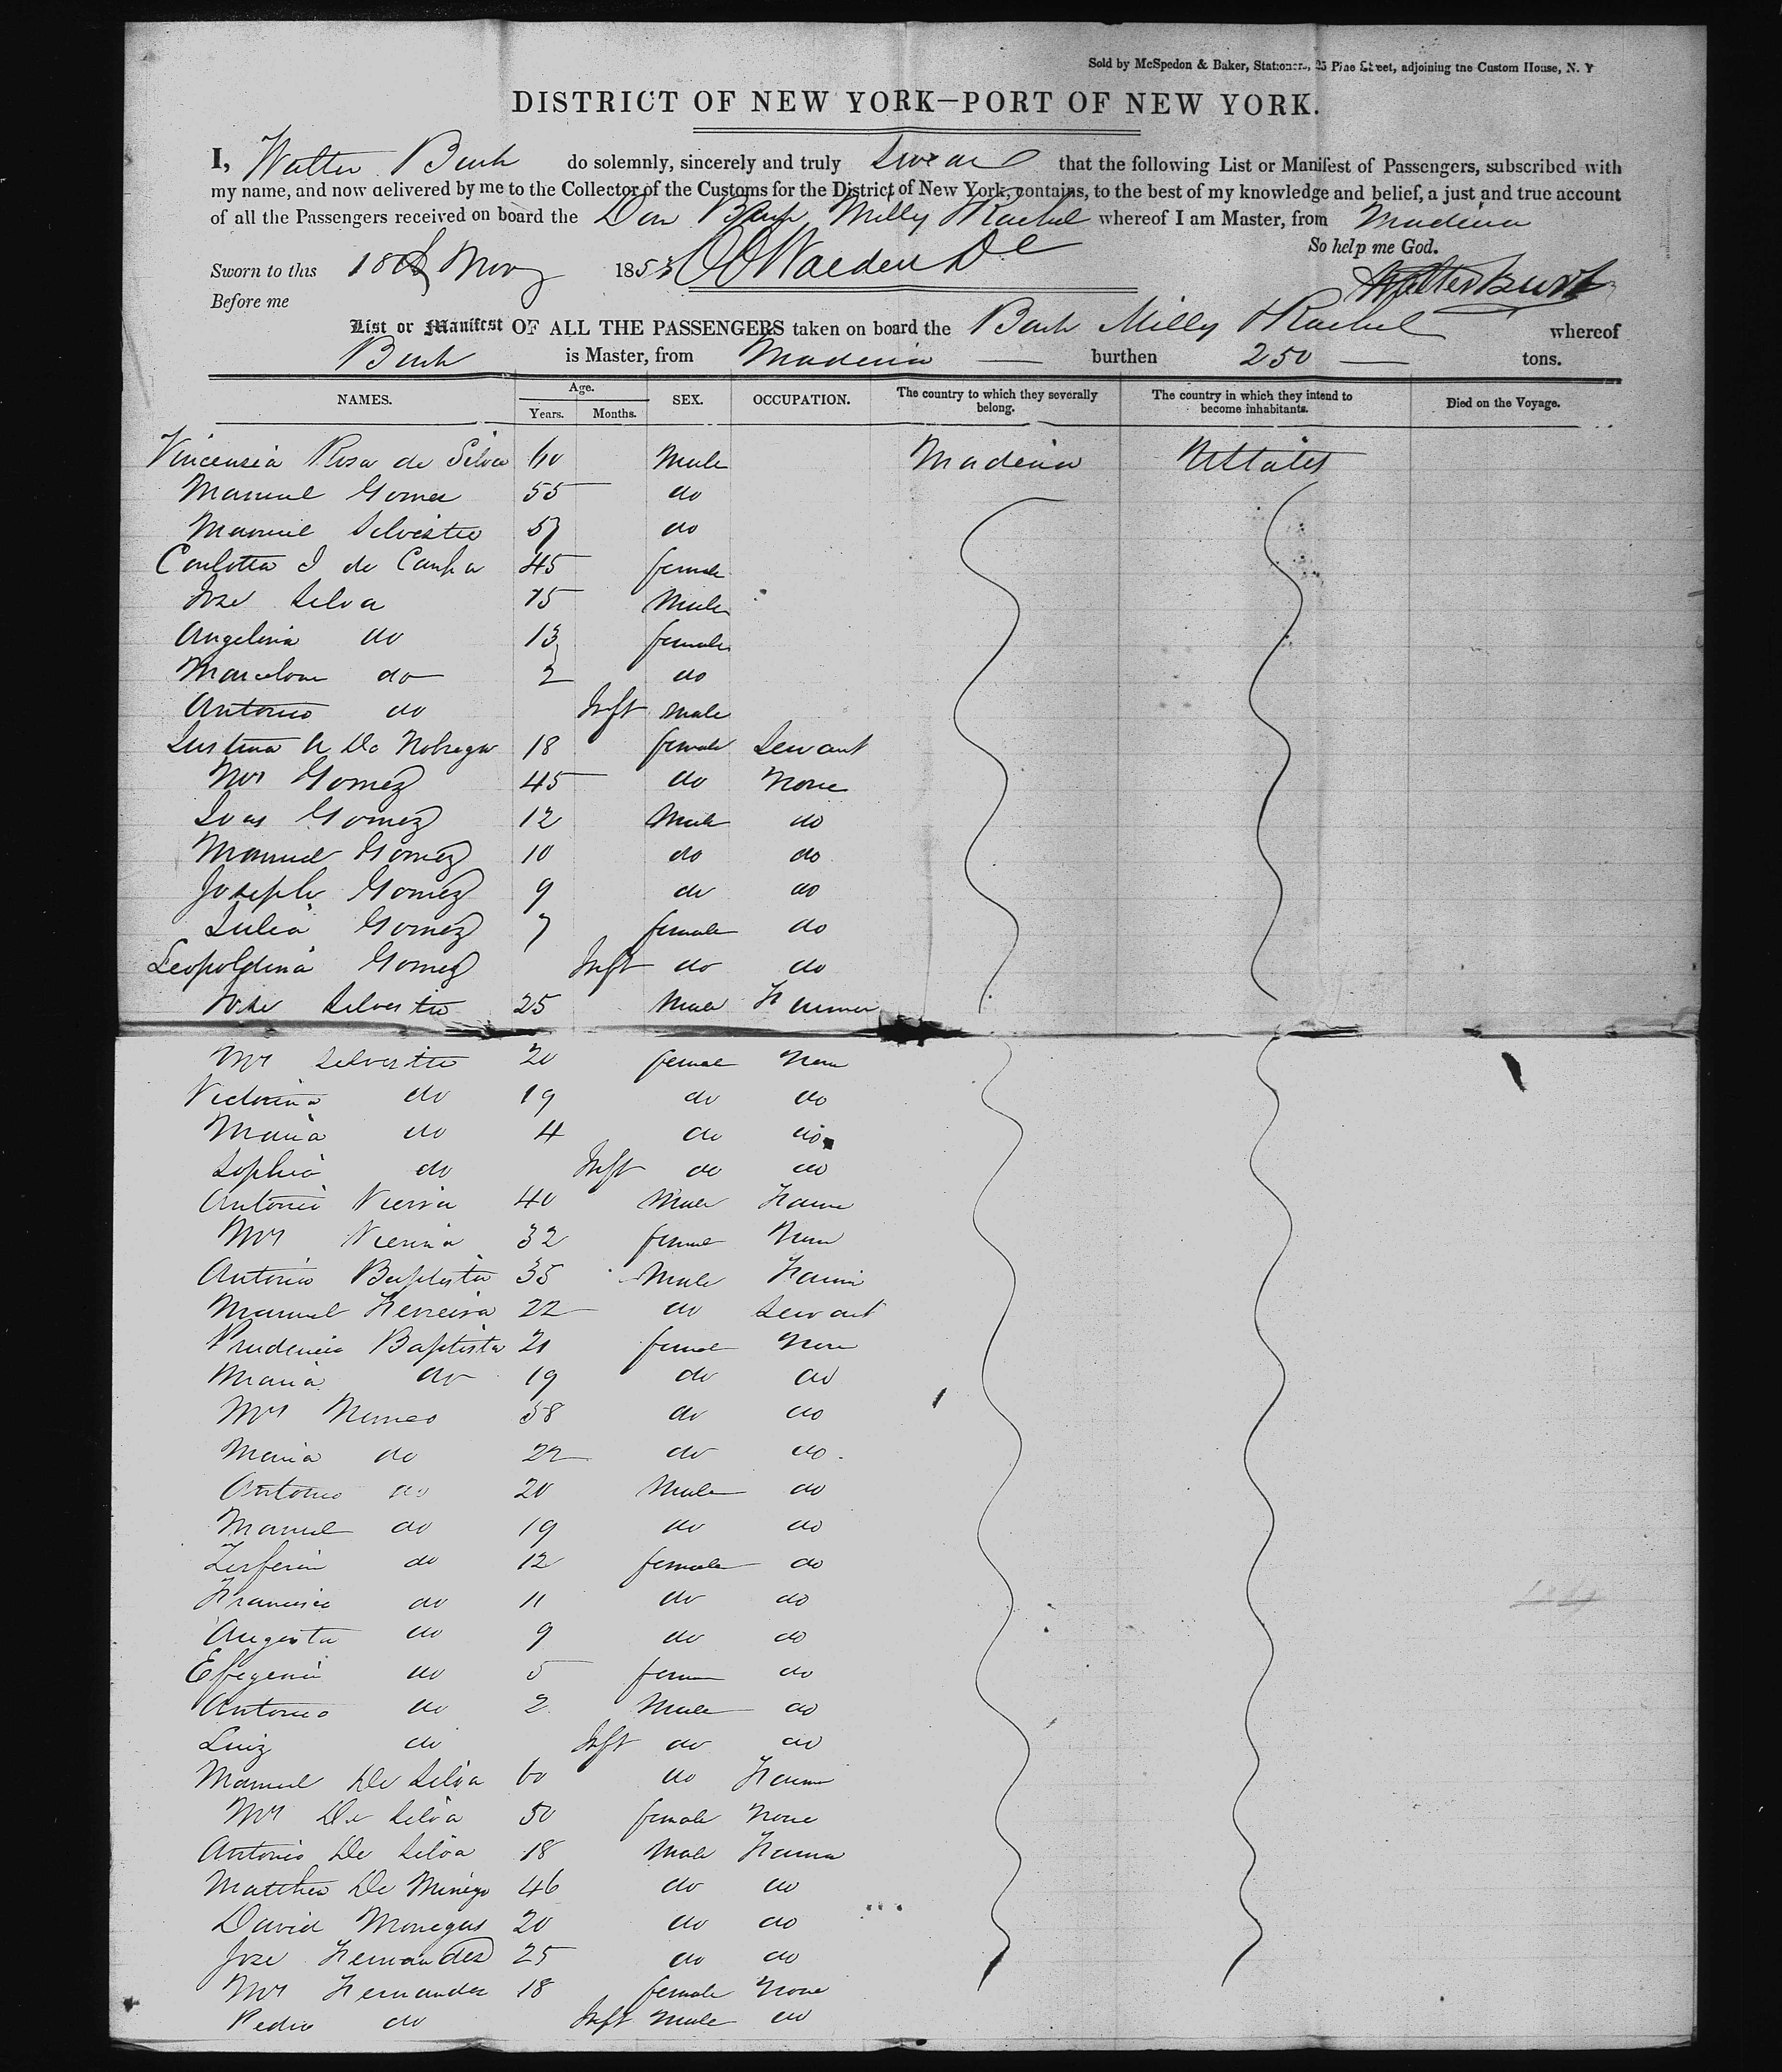 Sold by McSpedon & Baker, Stationers, 25 Pine Street, adjoining the Custom House, N. Y
DISTRICT OF NEW YORK—PORT OF NEW YORK.
I, Walter do solemnly, sincerely and truly Swear that the following List or Manifest of Passengers, subscribed with
my name, and now delivered by me to the Collector of the Customs for the District of New York, contains, to the best of my knowledge and belief, a just and true account
of all the Passengers received on board the Milly Rachel whereof I am Master, from Madeira
So help me God.
Sworn to this 18 1853
Before me
List or Manifest OF ALL THE PASSENGERS taken on board the Bark Milly & Rachel whereof
is Master, from Madeira burthen 250 tons.
NAMES. Age. Years. Months. SEX. OCCUPATION. The country to which they severally belong. The country in which they intend to become inhabitants. Died on the Voyage.
Vincensia Rosa de Silva 60 Male Madeira UStates
Manuel Gomez 55 do
Manuel Silvestre 57 do
Carlotta J de Canha 45 female
Jose Silva 15 Male
Angelina do 13 female
do 2 do
Antonio do Inft male
Justina A De Nobrega 18 female Servant
Mrs Gomez 45 do None
Gomez 12 Male do
Manuel Gomez 10 do do
Joseph Gomez 9 do do
Julia Gomez 7 female do
Leopoldina Gomez Inft do do
Jose Silvestre 25 Male Farmer
Mrs Silvestre 20 female None
Victorina do 19 do do
Maria do 4 do do
Sophia do Inft do do
Antonio Vieira 40 Male Farmer
Mrs Vieira 32 female None
Antonio Baptista 35 Male Farmer
Manuel Ferreira 22 do Servant
Prudencia Baptista 21 female None
Maria do 19 do do
Mrs Nunes 38 do do
Maria do 22 do do
Antonio do 20 Male do
Manuel do 19 do do
do 12 female do
Francisca do 11 do do
Augusta do 9 do do
Efegenia do 5 fem do
Antonio do 2 Male do
Luiz do Inft do do
Manuel De Silva 60 do Farmer
Mrs De Silva 50 female None
Antonio De Silva 18 Male Farmer
Matthew De 46 do do
David 20 do do
Jose Fernandez 25 do do
Mrs Fernandez 18 female None
Pedro do Inft Male do